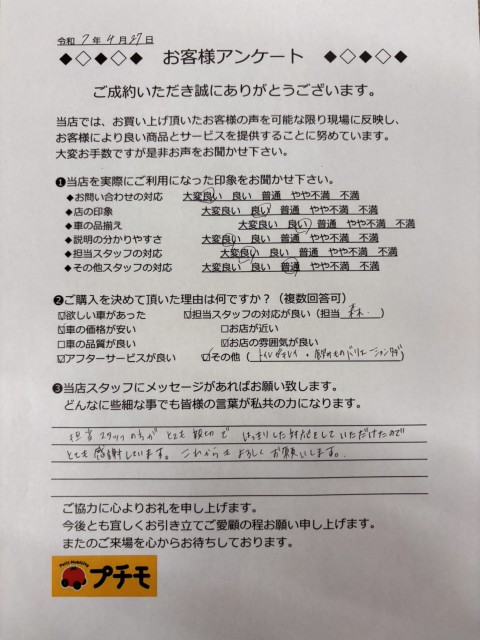 令和 7 年 4 月 27 日
◆◇◆◇◆ お客様アンケート ◆◇◆◇◆
ご成約いただき誠にありがとうございます。
当店では、お買い上げ頂いたお客様の声を可能な限り現場に反映し、
お客様により良い商品とサービスを提供することに努めています。
大変お手数ですが是非お声をお聞かせ下さい。
❶当店を実際にご利用になった印象をお聞かせ下さい。
◆お問い合わせの対応 大変良い 良い 普通 やや不満 不満
◆店の印象 大変良い 良い 普通 やや不満 不満
◆車の品揃え 大変良い 良い 普通 やや不満 不満
◆説明の分かりやすさ 大変良い 良い 普通 やや不満 不満
◆担当スタッフの対応 大変良い 良い 普通 やや不満 不満
◆その他スタッフの対応 大変良い 良い 普通 やや不満 不満
❷ご購入を決めて頂いた理由は何ですか？（複数回答可）
☑欲しい車があった ☑担当スタッフの対応が良い（担当 森 ）
☑車の価格が安い □お店が近い
□車の品質が良い ☑お店の雰囲気が良い
☑アフターサービスが良い ☑その他（トイレがキレイ・
❸当店スタッフにメッセージがあればお願い致します。
どんなに些細な事でも皆様の言葉が私共の力になります。
担当スタッフの方がとても親切で はっきりした対応をしていただけたので
とても感謝しています。これからもよろしくお願いします。
ご協力に心よりお礼を申し上げます。
今後とも宜しくお引き立てご愛顧の程お願い申し上げます。
またのご来場を心からお待ちしております。
Petit Mobility
プチモ